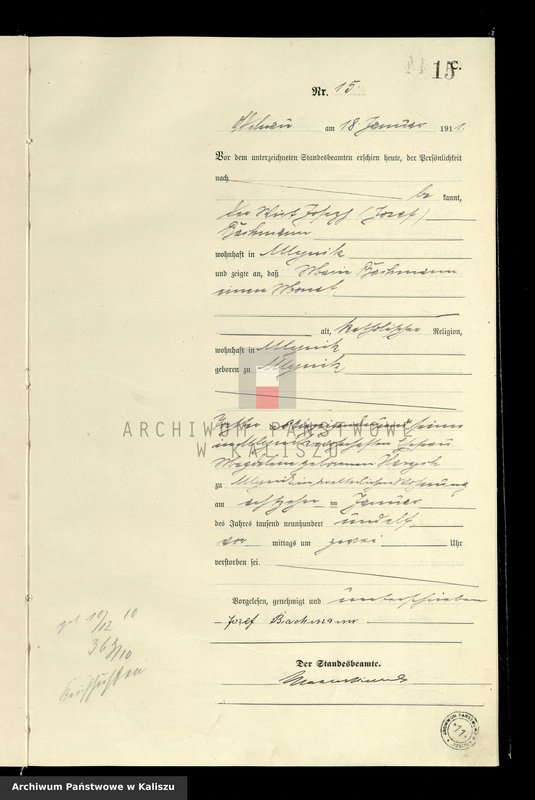 15c.
Nr. 15
am 18. Januar 1911.
Vor dem unterzeichneten Standesbeamten erschien heute, der Persönlichkeit
nach
be kannt,
der Wirt Joseph (Jozef)
Bachmann
wohnhaft in Mlynik
und zeigte an, daß Bachmann
einen Monat
alt, katholischer Religion,
wohnhaft in Mlynik
geboren zu Mlynik
Tochter seiner
in Mlynik wohnhaften Ehefrau
Magdalena geborenen
zu Mlynik in Wohnung
am achtzehn ten Januar
des Jahres tausend neunhundert und elf
vor mittags um zwei Uhr
verstorben sei.
Vorgelesen, genehmigt und unterschrieben
Jozef Bachmann
Der Standesbeamte.
ARCHIWUM PAŃSTWOWE
W KALISZU
10/12 10
Archiwum Państwowe w Kaliszu